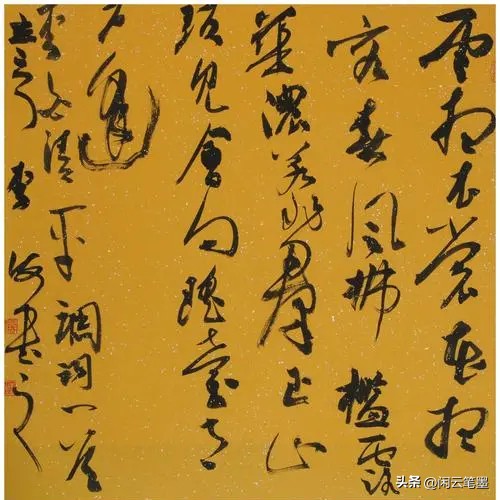 雲想衣裳花想
容春風拂檻露
華濃若非群玉山
頭見會向瑤臺月
下逢
清平調詞一首
書之
头条 @闲云笔墨